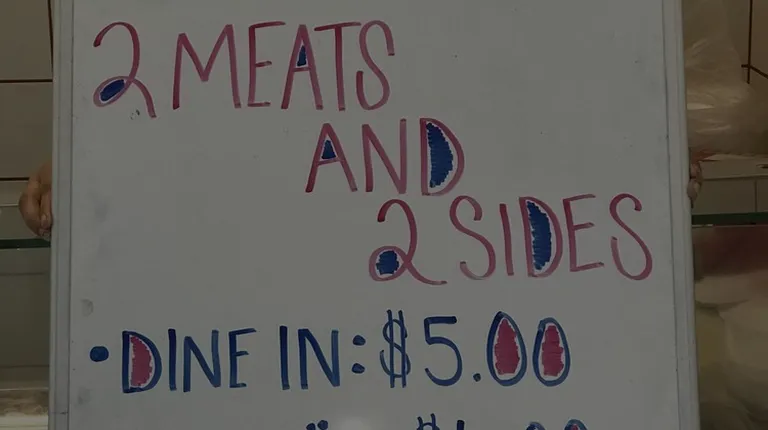 2 MEATS
AND
2 SIDES
• DINE IN: $5.00